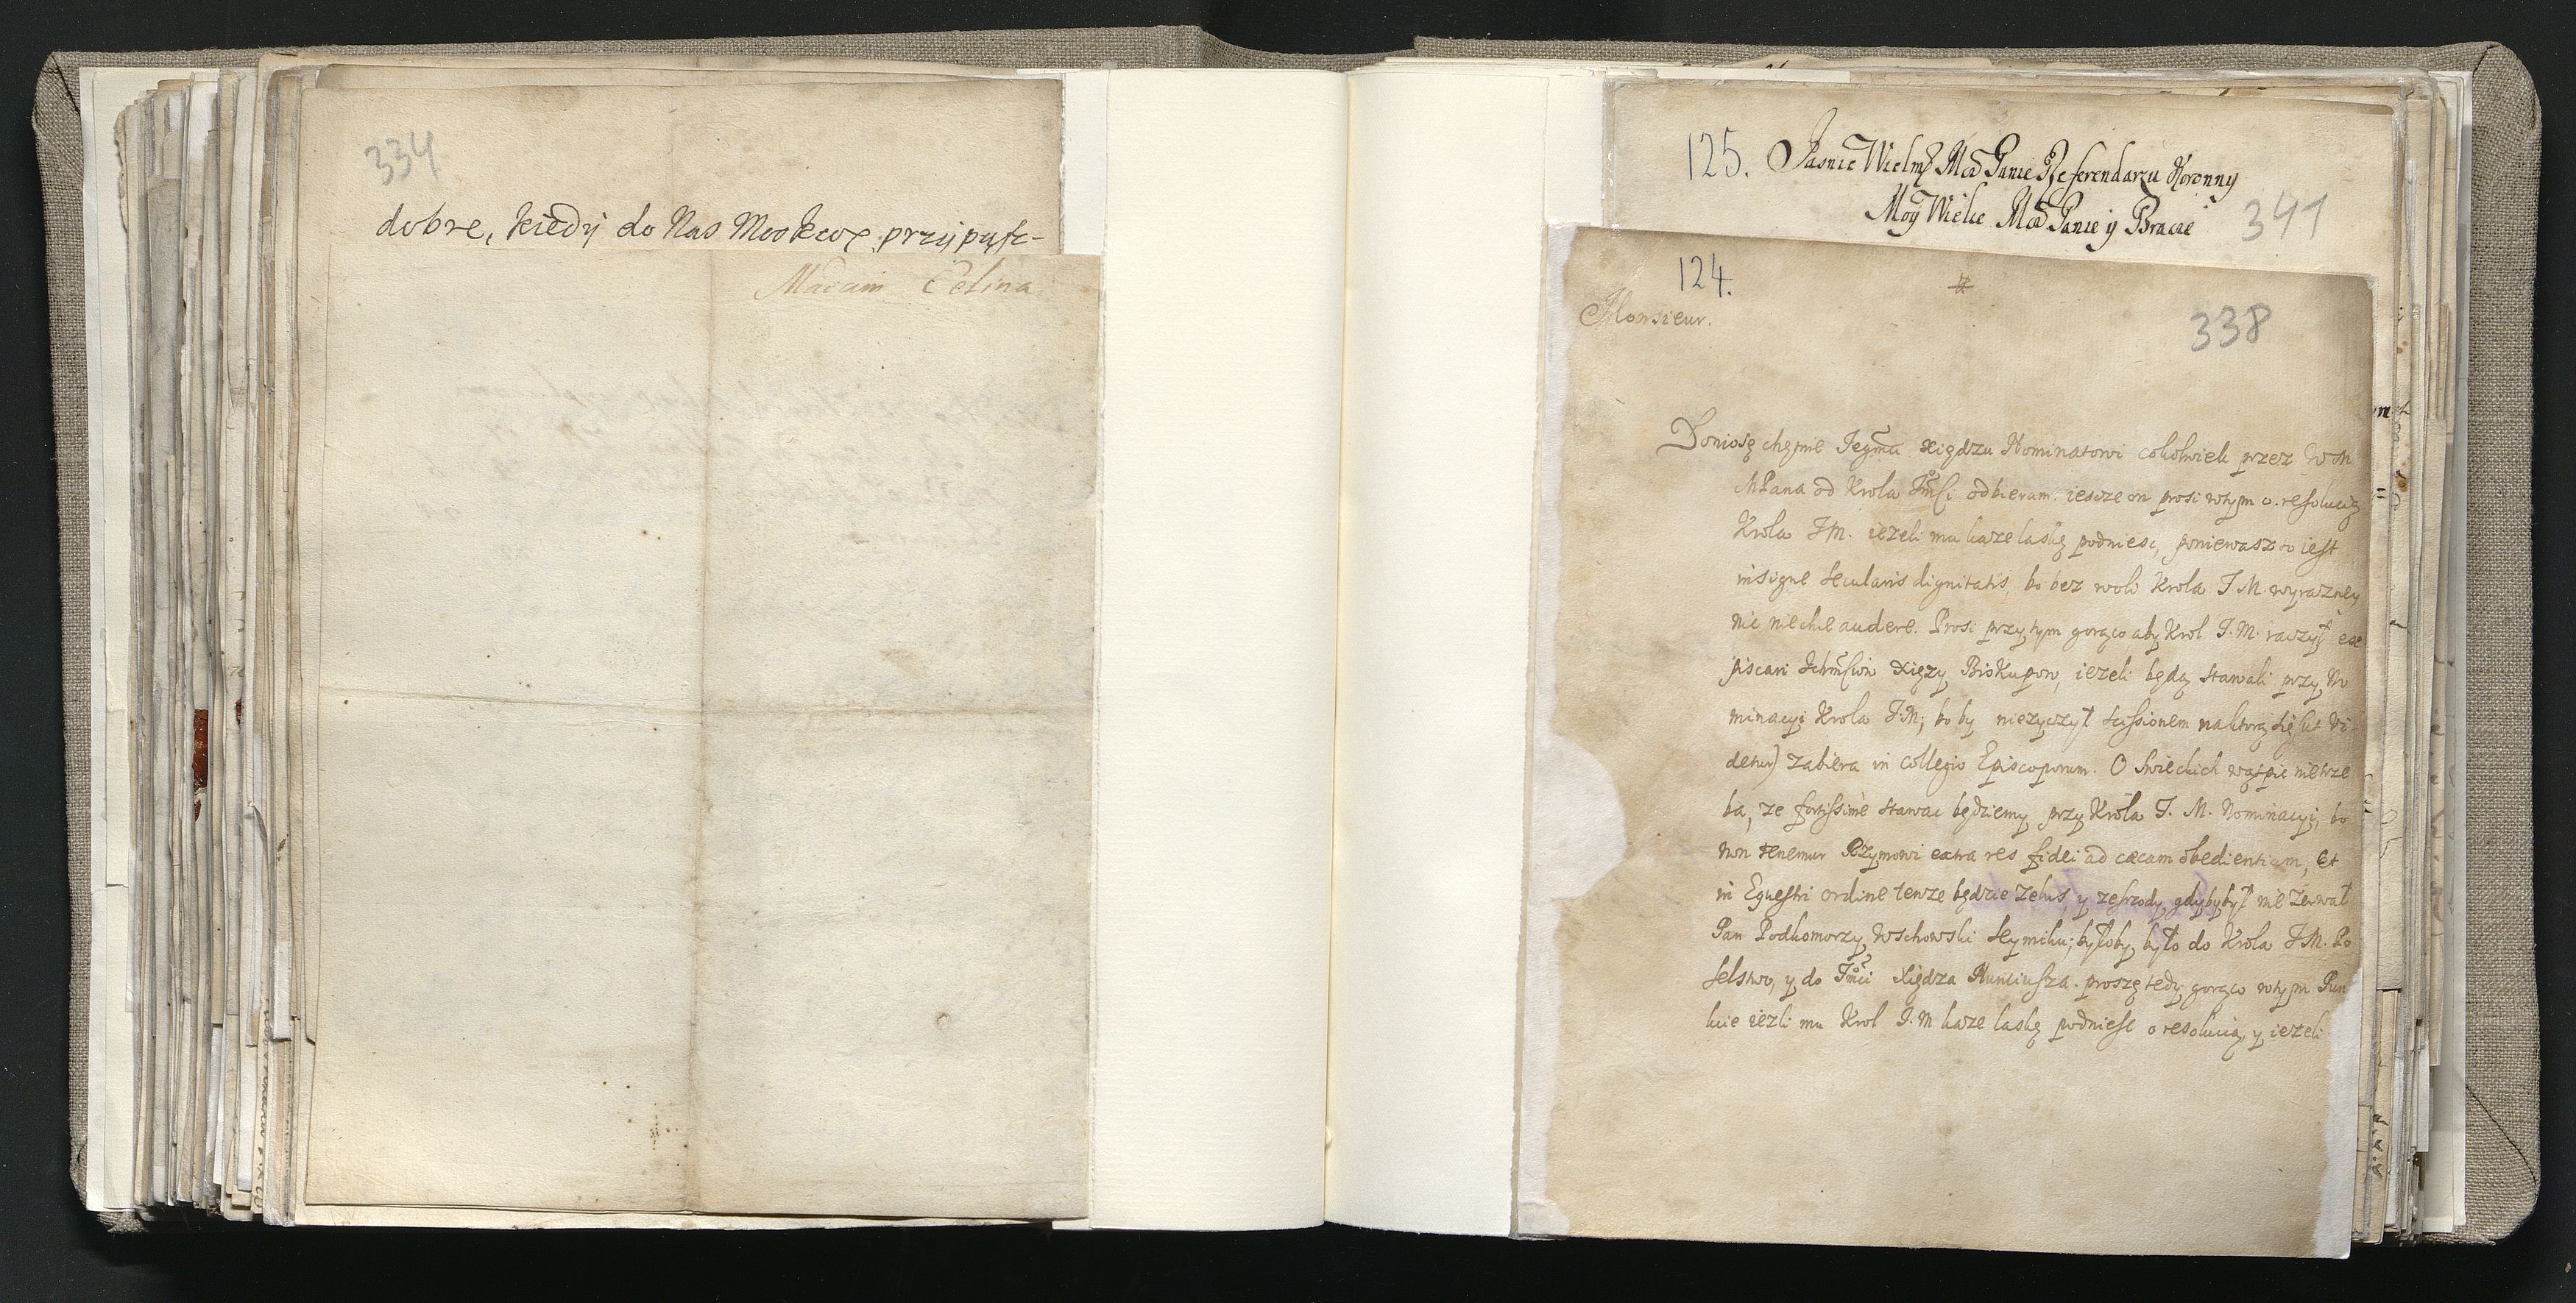 334
dobre, kiedy do Nas Moskwę przypusc-
Madam Celina
125. Jasnie Wielmż Mćd Panie Referendarzu Koronny
Moy Wielce Mćd Panie y Bracie
341
124.
338
Monsieur.
Doniosę chętnie Iegmći Xiędzu Nominatowi cokolwiek przez WM
MPana od Krola Jmści odbieram. iescze on prosi wtym o resolucią
Krola JM. iezeli mu kaze laskę podniesc, poniewasz to iest
insigne secularis dignitatis, bo bez woli Krola J.M. wyrazney
nic niechce audere. Prosi przy tym gorąco, aby Krol J.M. raczył ex
piscari Ichmściow Xięzy Biskupow, iezeli będą stawali przy No
minacyi Krola J.M; bo by niezyczył scissionem na ktorą się (ut vi-
detur) zabiera in collegio Episcoporum. O swieckich wątpic nietrze
ba, ze fortissimè stawac będziemy przy Krola J. M. Nominacyi, bo
non tenemur Rzymowi extra res fidei ad cæcam obedientiam, Et
in Equestri ordine tenze będzie zelus, y ze srzody, gdyby był nie zerwał
Pan Podkomorzy Wschowski seymiku; byłoby było do Krola J.M. Po
selstwo, y do Jmći Xiędza Nunciusza. proszę tedy gorąco wtym Pun
kcie iezli mu Krol J.M kaze laskę podniesc o resolucią, y iezeli